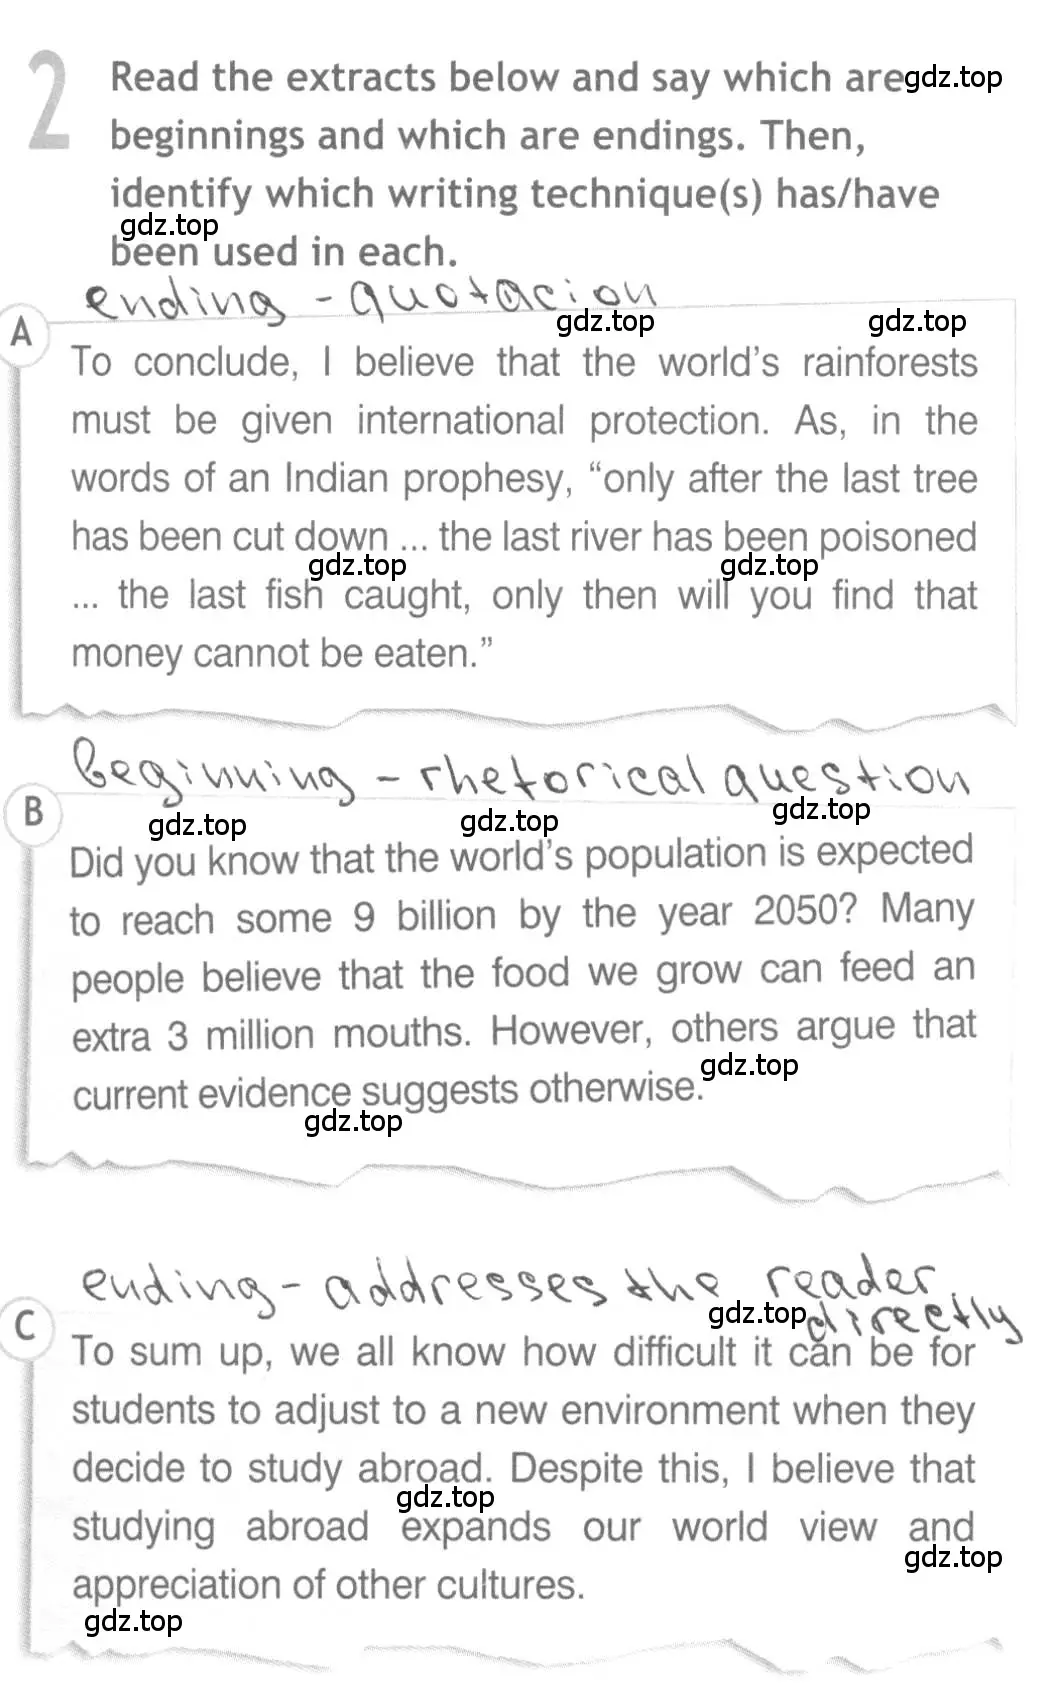 2 Read the extracts below and say which are gdz.top
beginnings and which are endings. Then,
identify which writing technique(s) has/have
gdz.top
been used in each.
ending - quotacion
gdz.top gdz.top
A
To conclude, I believe that the world's rainforests
must be given international protection. As, in the
words of an Indian prophesy, “only after the last tree
has been cut down ... the last river has been poisoned
gdz.top gdz.top
... the last fish caught, only then will you find that
money cannot be eaten.”
beginning - rhetorical question
B
gdz.top gdz.top gdz.top
Did you know that the world's population is expected
to reach some 9 billion by the year 2050? Many
people believe that the food we grow can feed an
extra 3 million mouths. However, others argue that
current evidence suggests otherwise. gdz.top
gdz.top
ending - addresses the reader
gdz.top directly
C
To sum up, we all know how difficult it can be for
students to adjust to a new environment when they
decide to study abroad. Despite this, I believe that
gdz.top
studying abroad expands our world view and
gdz.top
appreciation of other cultures.
gdz.top